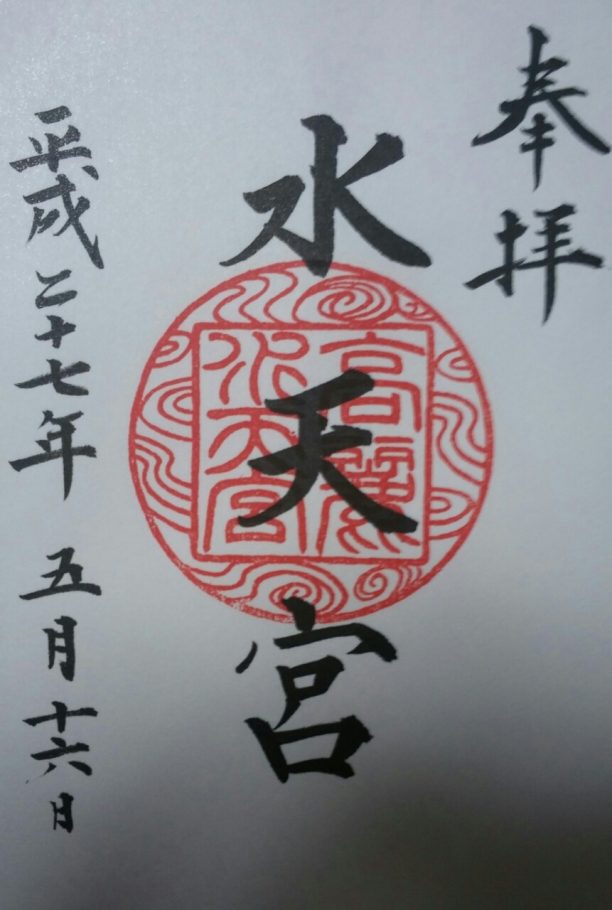 奉拝
水天宮
高麗
水天宮
平成二十七年 五月十六日